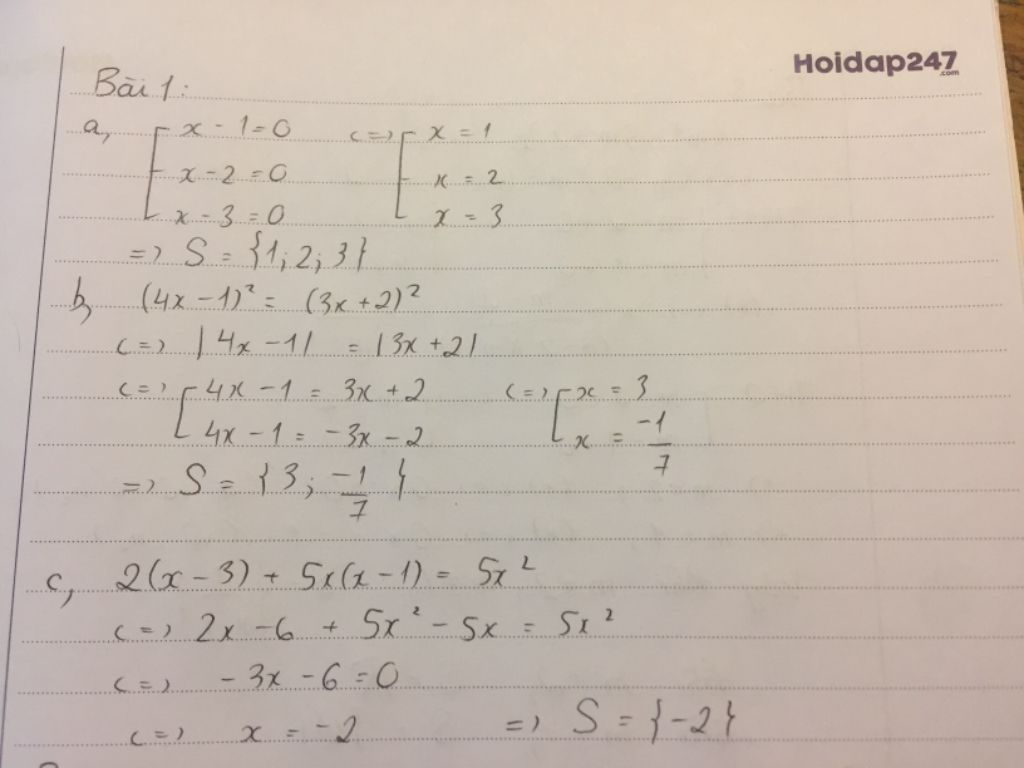 Hoidap247
.com
Bài 1:
a, [ x - 1 = 0 <=> [ x = 1
x - 2 = 0 x = 2
x - 3 = 0 x = 3
=> S = {1; 2; 3}
b, (4x - 1)² = (3x + 2)²
<=> |4x - 1| = |3x + 2|
<=> [ 4x - 1 = 3x + 2 <=> [ x = 3
4x - 1 = -3x - 2 x = -1/7
=> S = {3; -1/7}
c, 2(x - 3) + 5x(x - 1) = 5x²
<=> 2x - 6 + 5x² - 5x = 5x²
<=> -3x - 6 = 0
<=> x = -2 => S = {-2}